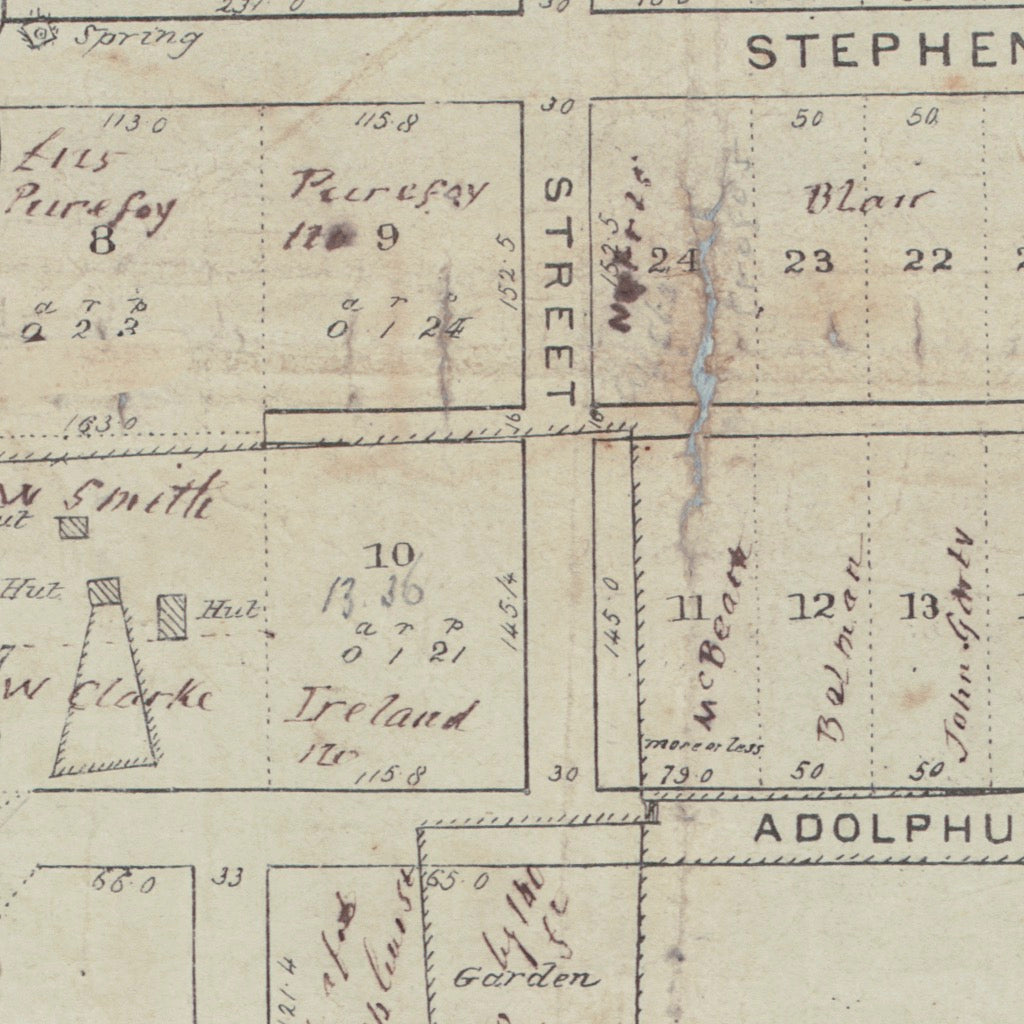 Spring
30
STEPHEN
113.0
115.8
30
50
50
£115
Purefoy
8
Purefoy
9
152.5
STREET
152.5
24
Blair
23
22
a r p
0 2 3
a r
0 1 24
163.0
16
16
W Smith
Hut
Hut
W Clarke
10
13.36
a r p
0 1 21
145.4
Ireland
115.8
30
145.0
11
McBean
more or less
79.0
12
Balman
50
13
John Gorty
50
ADOLPHU
66.0
33
65.0
Garden